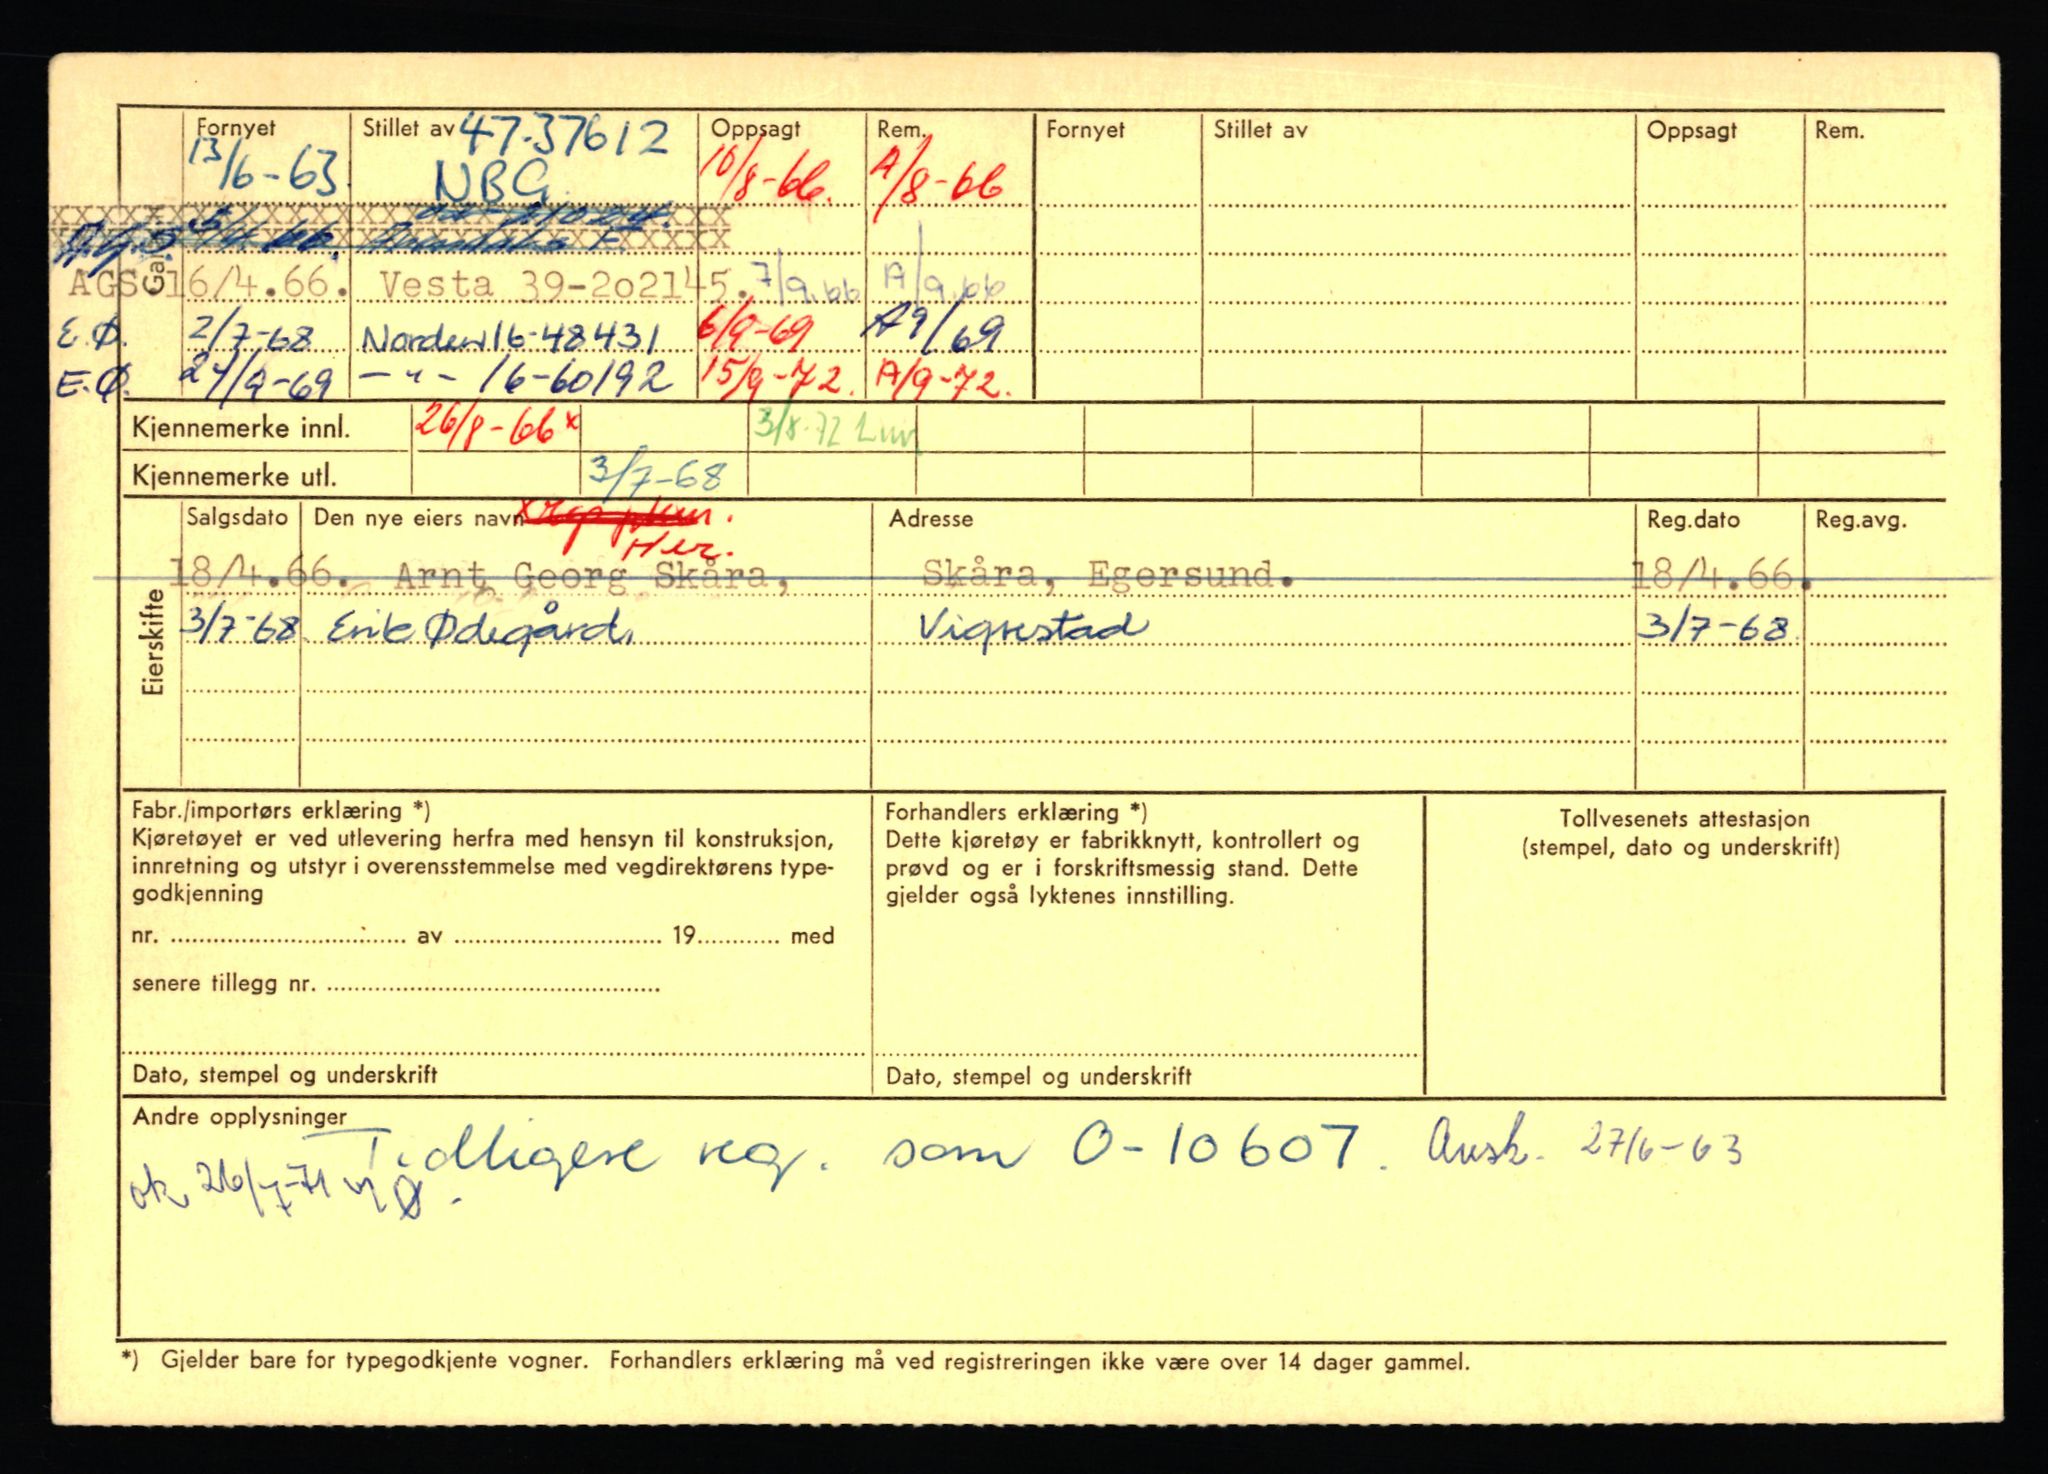 Fornyet Stillet av 47-37612 Oppsagt Rem. Fornyet Stillet av Oppsagt Rem.
13/6-63 NBG. 10/8-66. A/8-66
AGS 16/4.66. Vesta 39-202145. 7/9.66 A/9.66
E.Ø. 2/7-68 Norden 16-48431 6/9-69 A9/69
E.Ø. 24/9-69 -"- 16-60192 15/9-72. A/9-72.
Kjennemerke innl. 26/8-66 x 3/8-72
Kjennemerke utl. 3/7-68
Eierskifte
Salgsdato Den nye eiers navn Adresse Reg.dato Reg.avg.
18/4.66. Arnt Georg Skåra, Skåra, Egersund. 18/4.66.
3/7-68 Erik Ødegård. Vigrestad 3/7-68
Fabr./importørs erklæring *)
Kjøretøyet er ved utlevering herfra med hensyn til konstruksjon,
innretning og utstyr i overensstemmelse med vegdirektørens type-
godkjenning
nr. av 19 med
senere tillegg nr.
Dato, stempel og underskrift
Forhandlers erklæring *)
Dette kjøretøy er fabrikknytt, kontrollert og
prøvd og er i forskriftsmessig stand. Dette
gjelder også lyktenes innstilling.
Dato, stempel og underskrift
Tollvesenets attestasjon
(stempel, dato og underskrift)
Andre opplysninger
Tidligere reg. som O-10607. Avsk. 27/6-63
ok 26/7-71
*) Gjelder bare for typegodkjente vogner. Forhandlers erklæring må ved registreringen ikke være over 14 dager gammel.